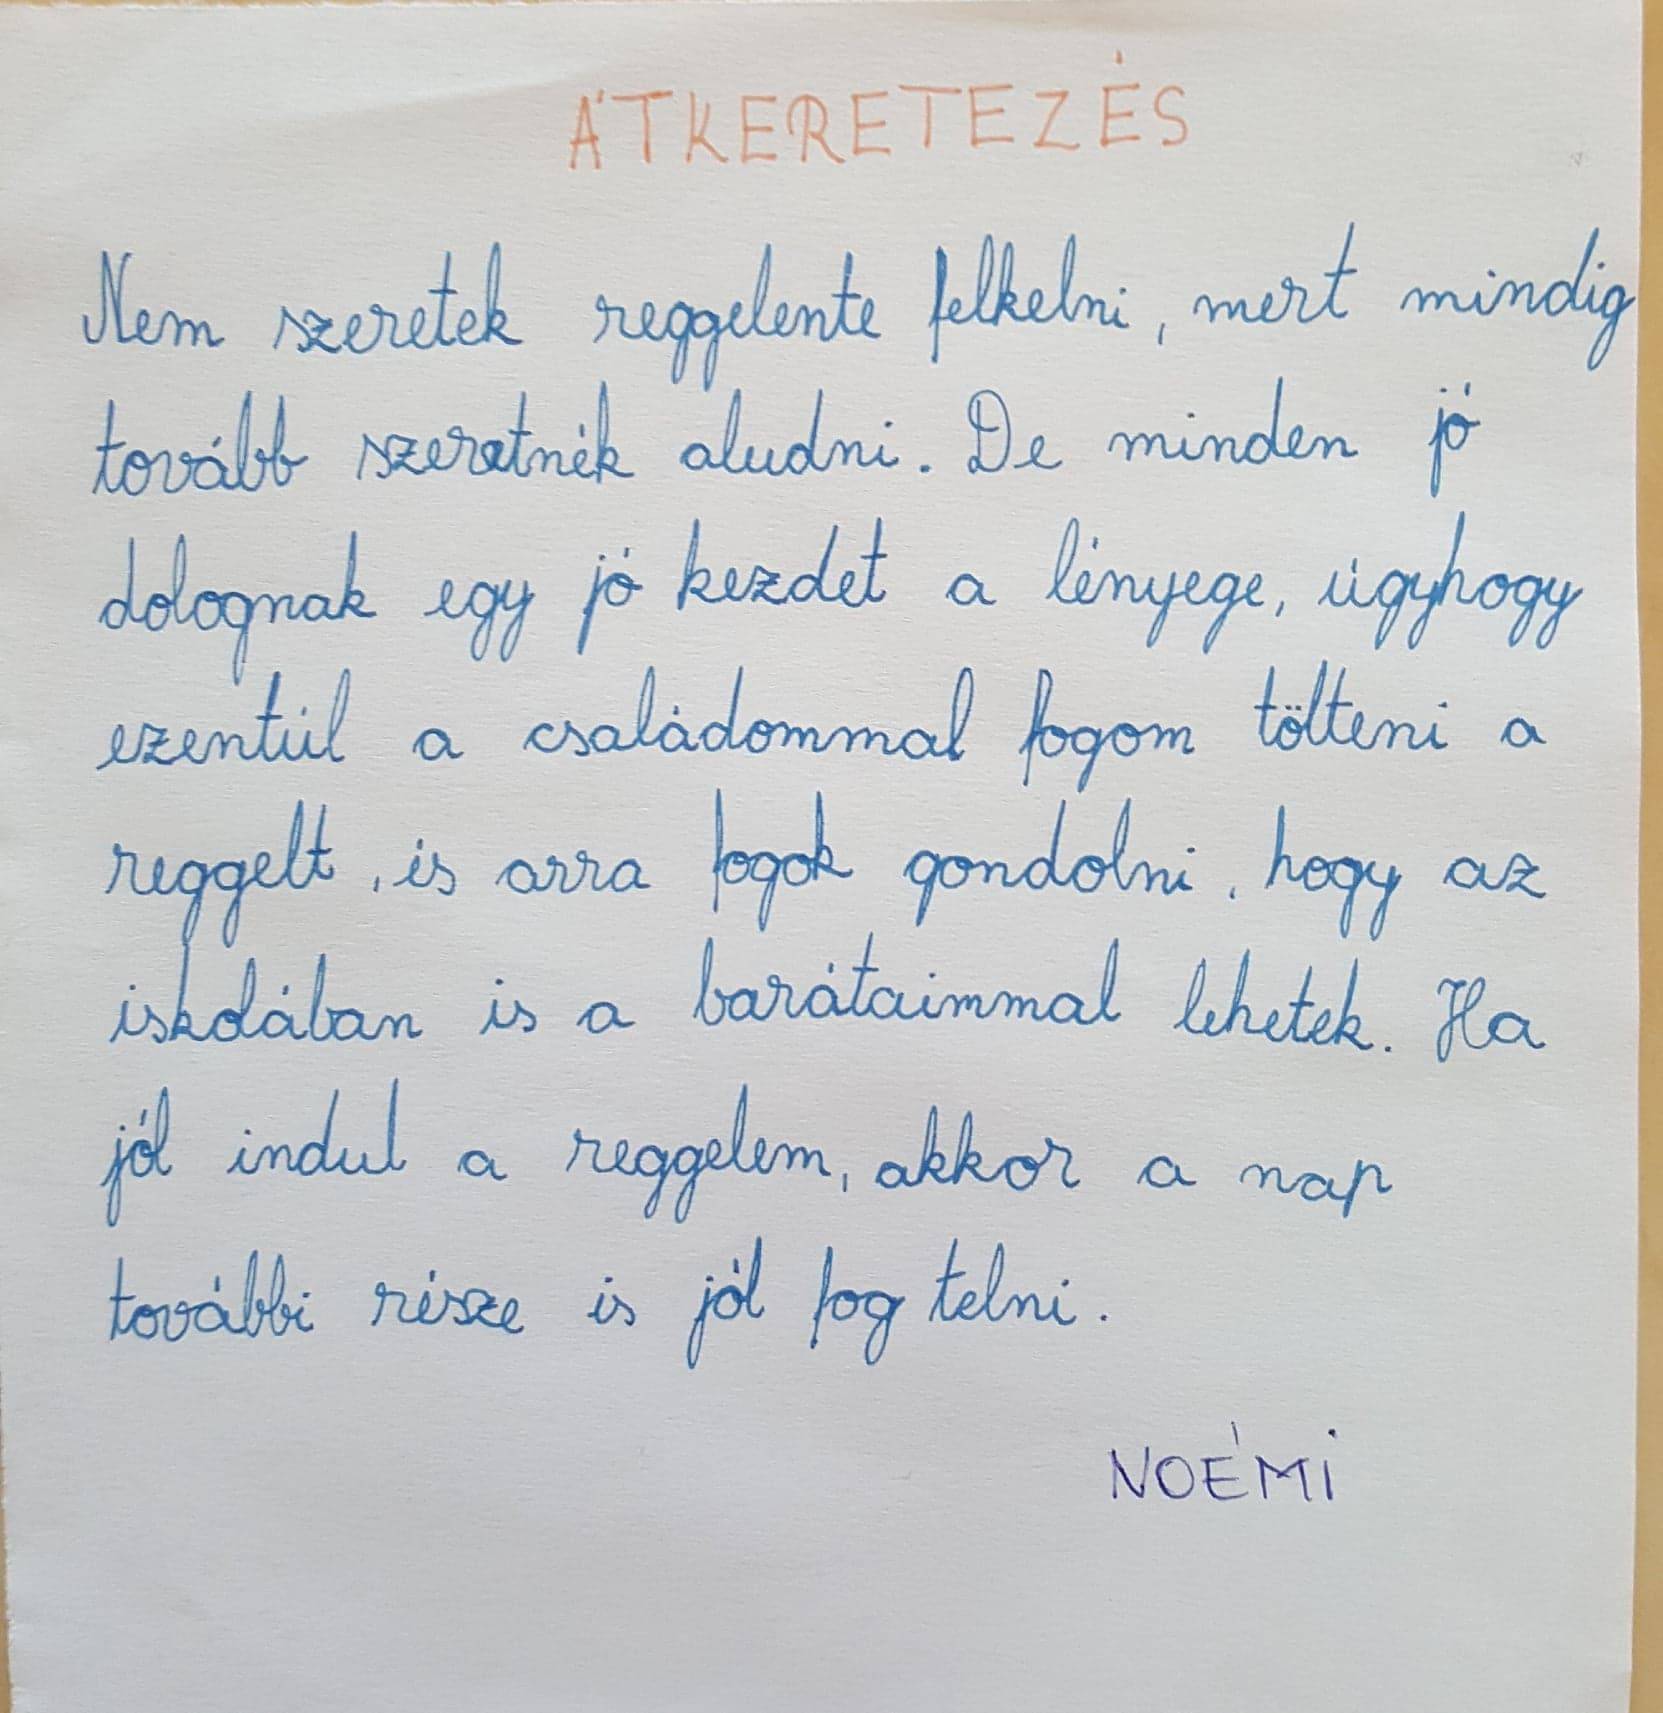 ÁTKERETEZÉS
Nem szeretek reggelente felkelni, mert mindig
tovább szeretnék aludni. De minden jó
dolognak egy jó kezdet a lényege, úgyhogy
ezentúl a családommal fogom tölteni a
reggelt, és arra fogok gondolni, hogy az
iskolában is a barátaimmal lehetek. Ha
jól indul a reggelem, akkor a nap
további része is jól fog telni.
NOÉMI